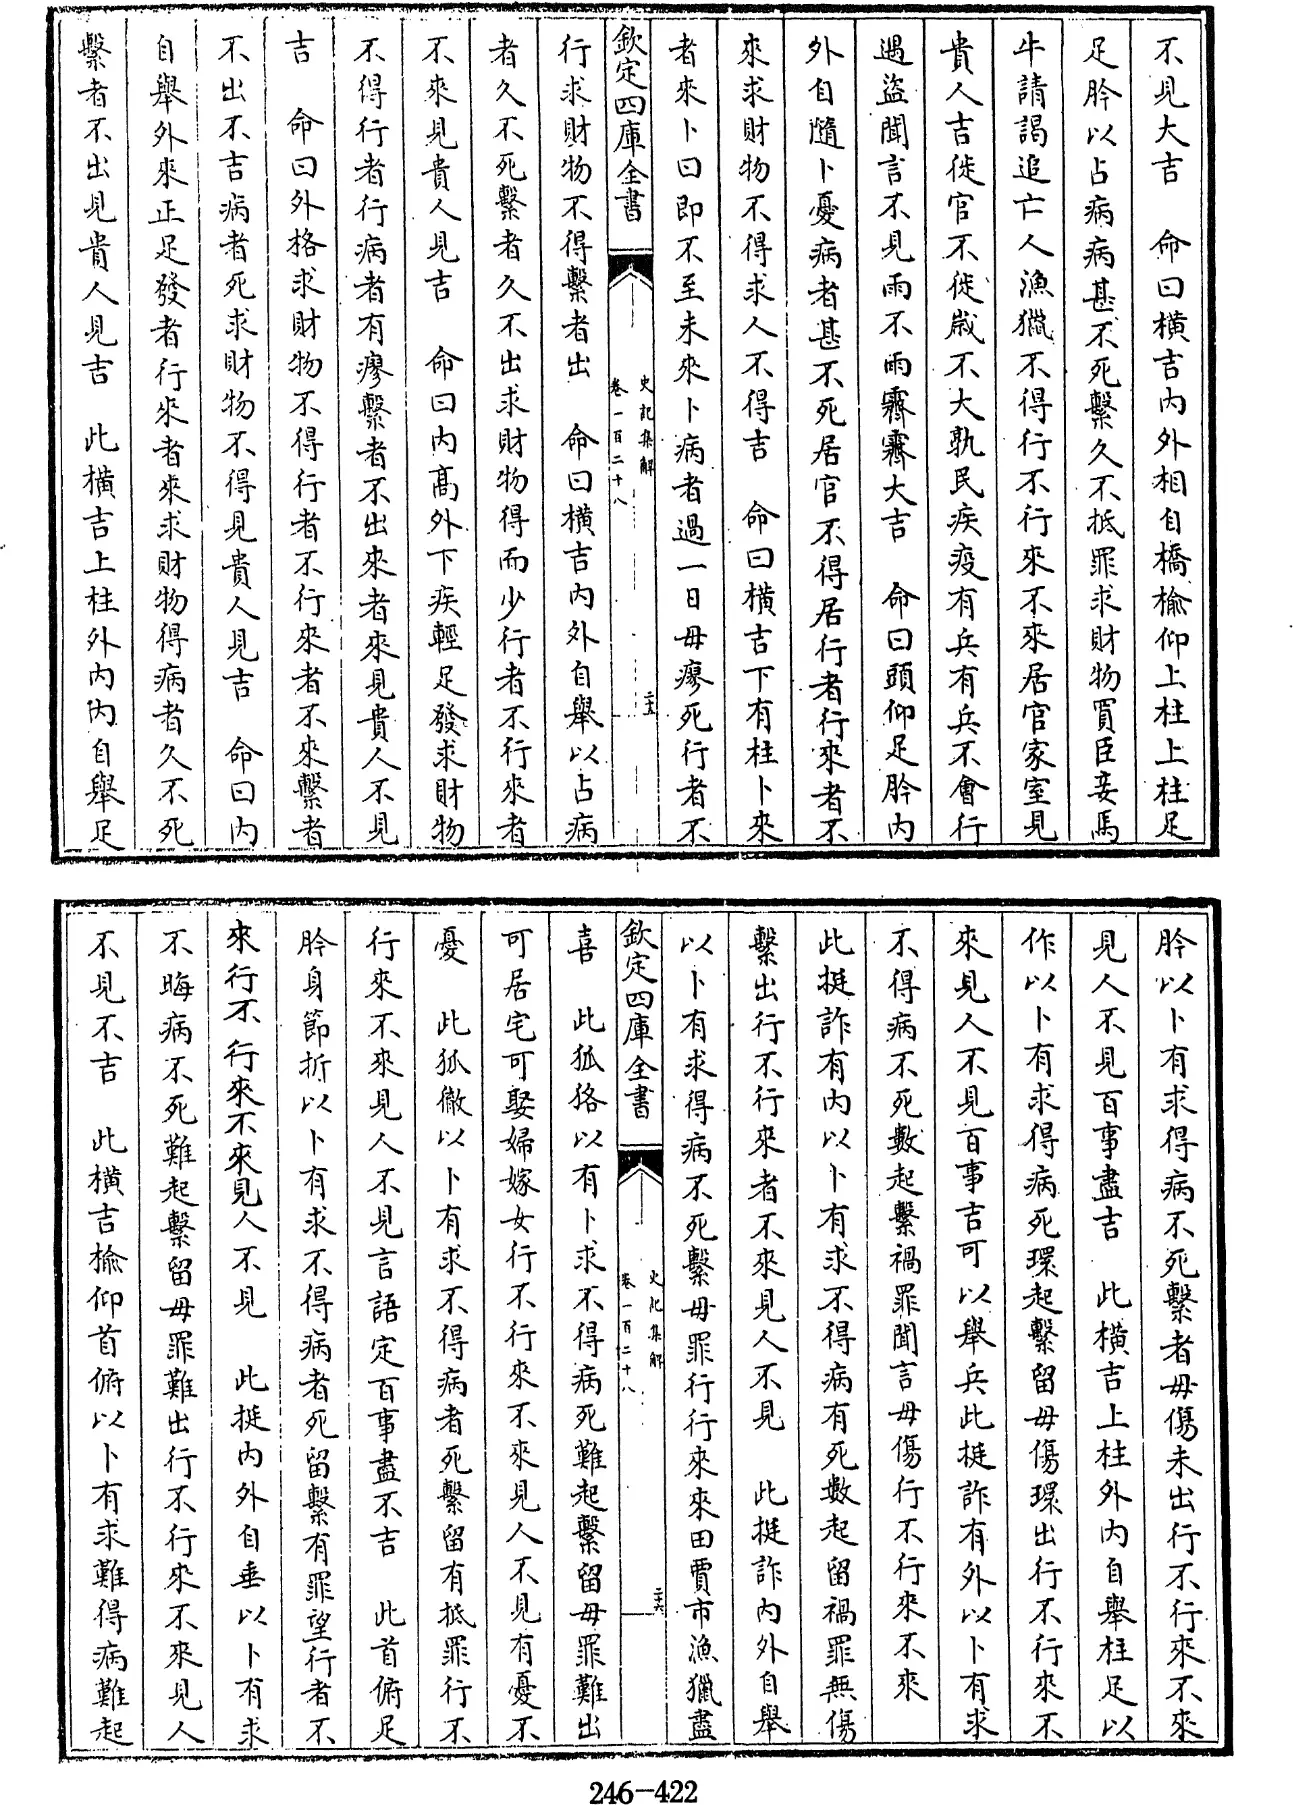 不見大吉　命曰橫吉內外相自橋榆仰上柱上柱足
足肣以占病病甚不死繫久不抵罪求財物買臣妾馬
牛請謁追亡人漁獵不得行不行來不來居官家室見
貴人吉徙官不徙歲不大孰民疾疫有兵有兵不會行
遇盜聞言不見雨不雨霽霽大吉　命曰頭仰足肣內
外自隨卜憂病者甚不死居官不得居行者行來者不
來求財物不得求人不得吉　命曰橫吉下有柱卜來
者來卜曰即不至未來卜病者過一日毋瘳死行者不
欽定四庫全書
史記集解
卷一百二十八
二十五
行求財物不得繫者出　命曰橫吉內外自舉以占病
者久不死繫者久不出求財物得而少行者不行來者
不來見貴人見吉　命曰內高外下疾輕足發求財物
不得行者行病者有瘳繫者不出來者來見貴人不見
吉　命曰外格求財物不得行者不行來者不來繫者
不出不吉病者死求財物不得見貴人見吉　命曰內
自舉外來正足發者行來者來求財物得病者久不死
繫者不出見貴人見吉　此橫吉上柱外內內自舉足
肣以卜有求得病不死繫者毋傷未出行不行來不來
見人不見百事盡吉　此橫吉上柱外內自舉柱足以
作以卜有求得病死環起繫留毋傷環出行不行來不
來見人不見百事吉可以舉兵此挺詐有外以卜有求
不得病不死數起繫禍罪聞言毋傷行不行來不來
此挺詐有內以卜有求不得病有死數起留禍罪無傷
繫出行不行來者不來見人不見　此挺詐內外自舉
以卜有求得病不死繫毋罪行行來來田賈市漁獵盡
欽定四庫全書
史記集解
卷一百二十八
二十六
喜　此狐狢以有卜求不得病死難起繫留毋罪難出
可居宅可娶婦嫁女行不行來不來見人不見有憂不
憂　此狐徹以卜有求不得病者死繫留有抵罪行不
行來不來見人不見言語定百事盡不吉　此首俯足
肣身節折以卜有求不得病者死留繫有罪望行者不
來行不行來不來見人不見　此挺內外自垂以卜有求
不晦病不死難起繫留毋罪難出行不行來不來見人
不見不吉　此橫吉榆仰首俯以卜有求難得病難起
246-422